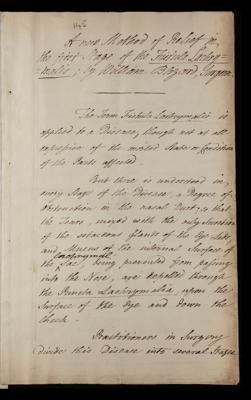 A new Method of Relief in
the first Stage of the Fistula Lachry-
-malis; by William Blizard Surgeon.
The Term Fistula Lachrymalis is
applied to a Disease, though not at all
expressive of the morbid State or Condition
of the Parts affected.
But there is understood in
every Stage of the Disease, a Degree of
Obstruction in the nasal Duct; so that
the Tears, mixed with the oily Secretion
of the sebaceous Glands of the Eye-lids,
and Mucus of the internal Surface of
lachrymal
the Sac being prevented from passing
into the Nose, are repelled through
the Puncta Lachrymalia, upon the
Surface of the Eye and down the
Cheek.
Practitioners in Surgery
divide this Disease into several Stages